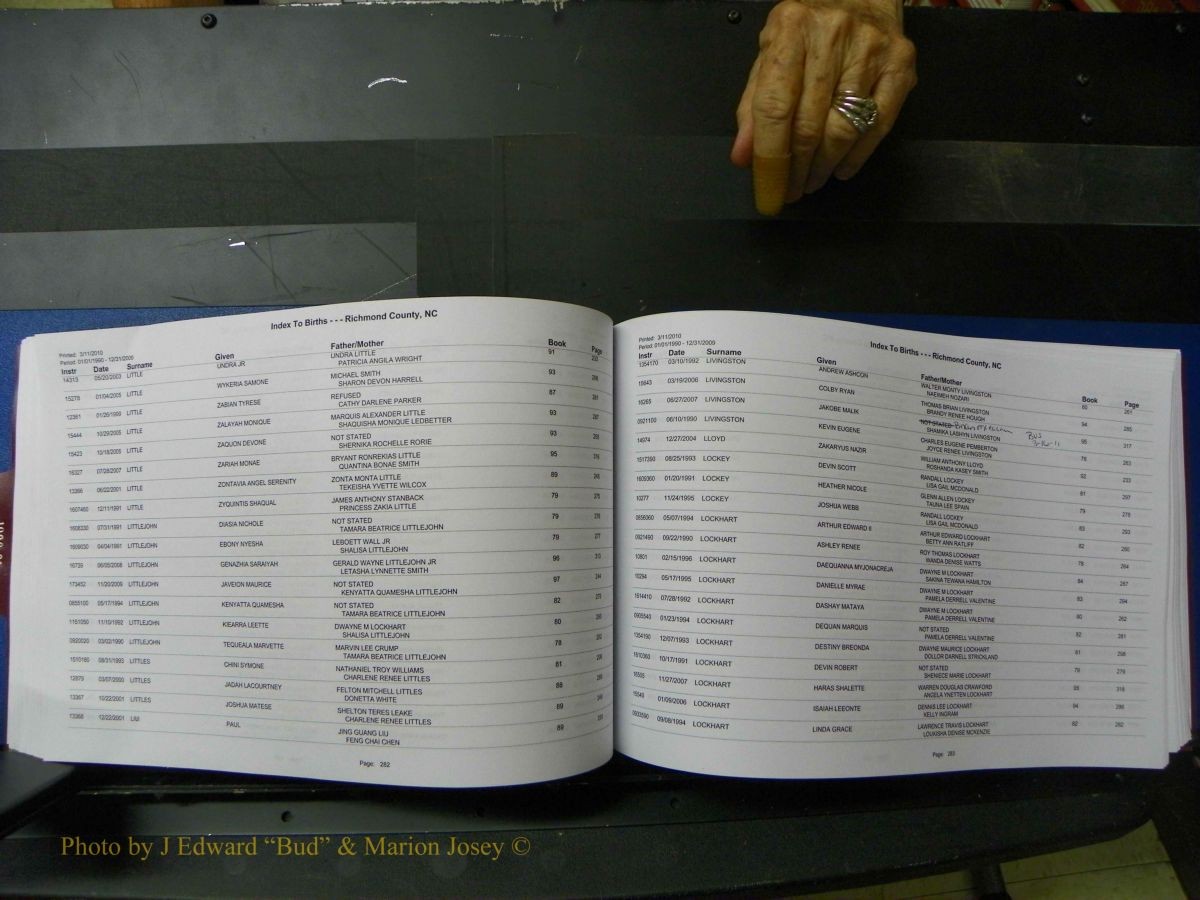 Index To Births - - - Richmond County, NC
Printed: 3/11/2010
Period: 01/01/1990 - 12/31/2009
Instr Date Surname Given Father/Mother Book Page
14313 05/20/2003 LITTLE UNDRA JR UNDRA LITTLE 91
PATRICIA ANGILA WRIGHT
15278 01/04/2005 LITTLE WYKERIA SAMONE MICHAEL SMITH 93
SHARON DEVON HARRELL
12361 01/26/1999 LITTLE ZABIAN TYRESE REFUSED 87
CATHY DARLENE PARKER
15444 10/29/2005 LITTLE ZALAYAH MONIQUE MARQUIS ALEXANDER LITTLE 93
SHAQUISHA MONIQUE LEDBETTER
15423 10/18/2005 LITTLE ZAQUON DEVONE NOT STATED 93
SHERNIKA ROCHELLE RORIE
16327 07/28/2007 LITTLE ZARIAH MONAE BRYANT RONREKIAS LITTLE 95
QUANTINA BONAE SMITH
13266 06/22/2001 LITTLE ZONTAVIA ANGEL SERENITY ZONTA MONTA LITTLE 89
TEKEISHA YVETTE WILCOX
1607460 12/11/1991 LITTLE ZYQUINTIS SHAQUAL JAMES ANTHONY STANBACK 79
PRINCESS ZAKIA LITTLE
1608330 07/31/1991 LITTLEJOHN DIASIA NICHOLE NOT STATED 79
TAMARA BEATRICE LITTLEJOHN
1609030 04/04/1991 LITTLEJOHN EBONY NYESHA LEBOETT WALL JR 79
SHALISA LITTLEJOHN
16739 06/05/2008 LITTLEJOHN GENAZHIA SARAIYAH GERALD WAYNE LITTLEJOHN JR 96
LETASHA LYNNETTE SMITH
173452 11/20/2009 LITTLEJOHN JAVEION MAURICE NOT STATED 97
KENYATTA QUAMESHA LITTLEJOHN
0855100 05/17/1994 LITTLEJOHN KENYATTA QUAMESHA NOT STATED 82
TAMARA BEATRICE LITTLEJOHN
1151050 11/10/1992 LITTLEJOHN KIEARRA LEETTE DWAYNE M LOCKHART 80
SHALISA LITTLEJOHN
0920020 03/02/1990 LITTLEJOHN TEQUEALA MARVETTE MARVIN LEE CRUMP 78
TAMARA BEATRICE LITTLEJOHN
1510180 08/31/1993 LITTLES CHINI SYMONE NATHANIEL TROY WILLIAMS 81
CHARLENE RENEE LITTLES
12879 03/07/2000 LITTLES JADAH LACOURTNEY FELTON MITCHELL LITTLES 88
DONETTA WHITE
13367 10/22/2001 LITTLES JOSHUA MATESE SHELTON TERES LEAKE 89
CHARLENE RENEE LITTLES
13368 12/22/2001 LIU PAUL JING GUANG LIU 89
FENG CHAI CHEN
Page: 282
Index To Births - - - Richmond County, NC
Printed: 3/11/2010
Period: 01/01/1990 - 12/31/2009
Instr Date Surname Given Father/Mother Book Page
1354170 03/10/1992 LIVINGSTON ANDREW ASHCON WALTER MONTY LIVINGSTON 80 261
NAEIMEH NOZARI
15643 03/19/2006 LIVINGSTON COLBY RYAN THOMAS BRIAN LIVINGSTON 94 285
BRANDY RENEE HOUGH
16265 06/27/2007 LIVINGSTON JAKOBE MALIK NOT STATED 95 317
SHAMIKA LASHYN LIVINGSTON
0921100 06/10/1990 LIVINGSTON KEVIN EUGENE CHARLES EUGENE PEMBERTON 78 263
JOYCE RENEE LIVINGSTON
14974 12/27/2004 LLOYD ZAKARYUS NAZIR WILLIAM ANTHONY LLOYD 92 233
ROSHANDA KASEY SMITH
1517390 08/25/1993 LOCKEY DEVIN SCOTT RANDALL LOCKEY 81 297
LISA GAIL MCDONALD
1609360 01/20/1991 LOCKEY HEATHER NICOLE GLENN ALLEN LOCKEY 79 278
TAUNA LEE SPAIN
10277 11/24/1995 LOCKEY JOSHUA WEBB RANDALL LOCKEY 83 293
LISA GAIL MCDONALD
0856360 05/07/1994 LOCKHART ARTHUR EDWARD II ARTHUR EDWARD LOCKHART 82 280
BETTY ANN RATLIFF
0921490 09/22/1990 LOCKHART ASHLEY RENEE ROY THOMAS LOCKHART 78 264
WANDA DENISE WATTS
10801 02/15/1996 LOCKHART DAEQUANNA MYJONACREJA DWAYNE M LOCKHART 84 287
SAKINA TEWANA HAMILTON
10294 05/17/1995 LOCKHART DANIELLE MYRAE DWAYNE M LOCKHART 83 294
PAMELA DERRELL VALENTINE
1514410 07/28/1992 LOCKHART DASHAY MATAYA DWAYNE M LOCKHART 80 262
PAMELA DERRELL VALENTINE
0905540 01/23/1994 LOCKHART DEQUAN MARQUIS NOT STATED 82 281
PAMELA DERRELL VALENTINE
1354190 12/07/1993 LOCKHART DESTINY BREONDA DWAYNE MAURICE LOCKHART 81 298
DOLLOR DARNELL STRICKLAND
1610360 10/17/1991 LOCKHART DEVIN ROBERT NOT STATED 79 279
SHENIECE MARIE LOCKHART
16505 11/27/2007 LOCKHART HARAS SHALETTE WARREN DOUGLAS CRAWFORD 95 318
ANGELA YNETTEN LOCKHART
15549 01/09/2006 LOCKHART ISAIAH LEEONTE DENNIS LEE LOCKHART 94 286
KELLY INGRAM
0933590 09/08/1994 LOCKHART LINDA GRACE LAWRENCE TRAVIS LOCKHART 82 282
LOUKISHA DENISE MCKENZIE
Page: 283
Photo by J Edward “Bud” & Marion Josey ©